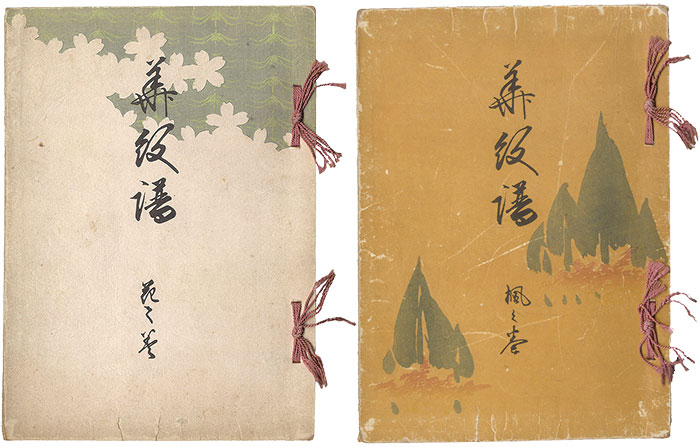 華紋譜
花之巻
華紋譜
楓之巻